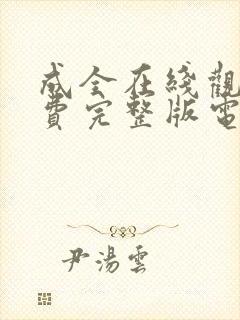 成全在綫觀
費完整版電
尹湯雲